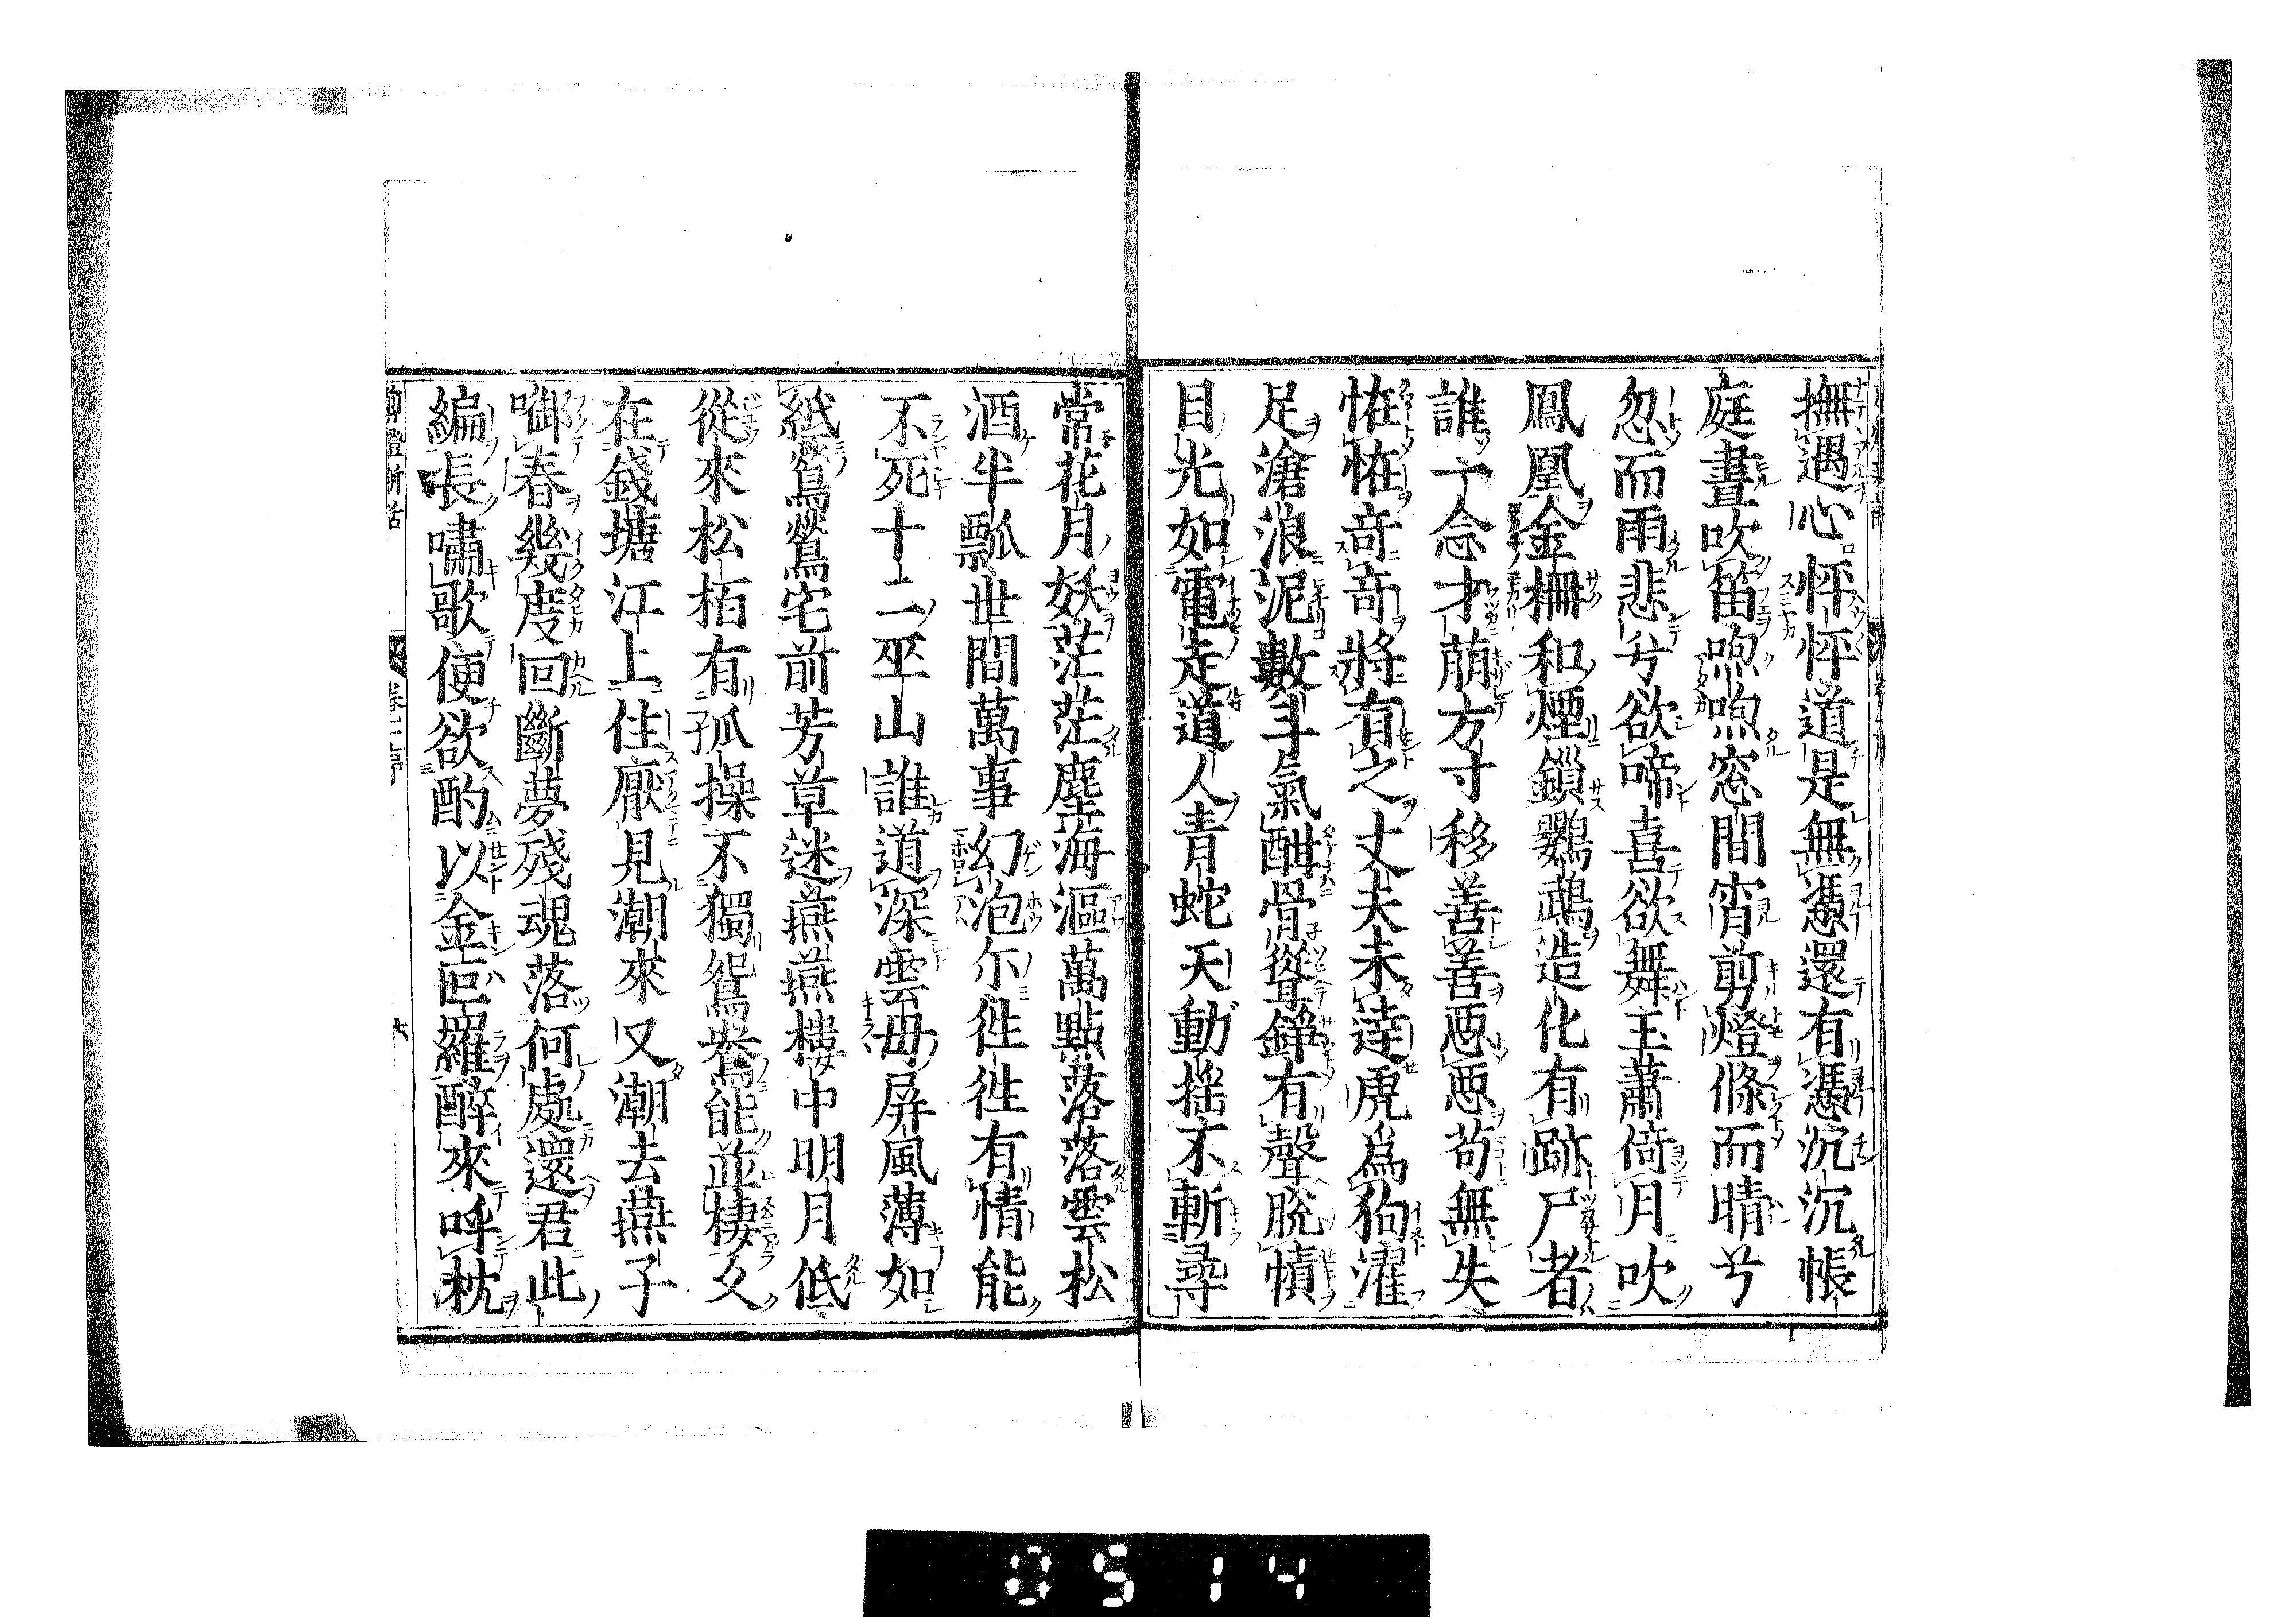 撫遇心怦怦道是無憑還有憑沉沉帳
庭晝吹笛喣喣窓間宵剪燈倏而晴兮
忽而雨悲兮欲啼喜欲舞玉蕭倚月吹
鳳凰金柵和煙鎻鸚鵡造化有跡尸者
誰一念才萠方寸移善善惡惡苟無失
恠恠竒竒將有之丈夫未達虎爲狗濯
足滄浪泥數斗氣酣骨聳錚有聲脫幘
目光如電走道人青蛇天動揺不斬尋
常花月妖茫茫塵海漚萬點落落雲松
酒半瓢世間萬事幻泡尓徃徃有情能
不死十二巫山誰道深雲毋屏風薄如
紙鶯鶯宅前芳草迷燕燕樓中明月低
從來松栢有孤操不獨鴛鴦能並棲久
在錢塘江上住厭見潮來又潮去燕子
啣春幾度回斷夢殘魂落何處還君此
編長嘯歌便欲酌以金叵羅醉來呼枕
剪燈新話
卷一序
六
0514